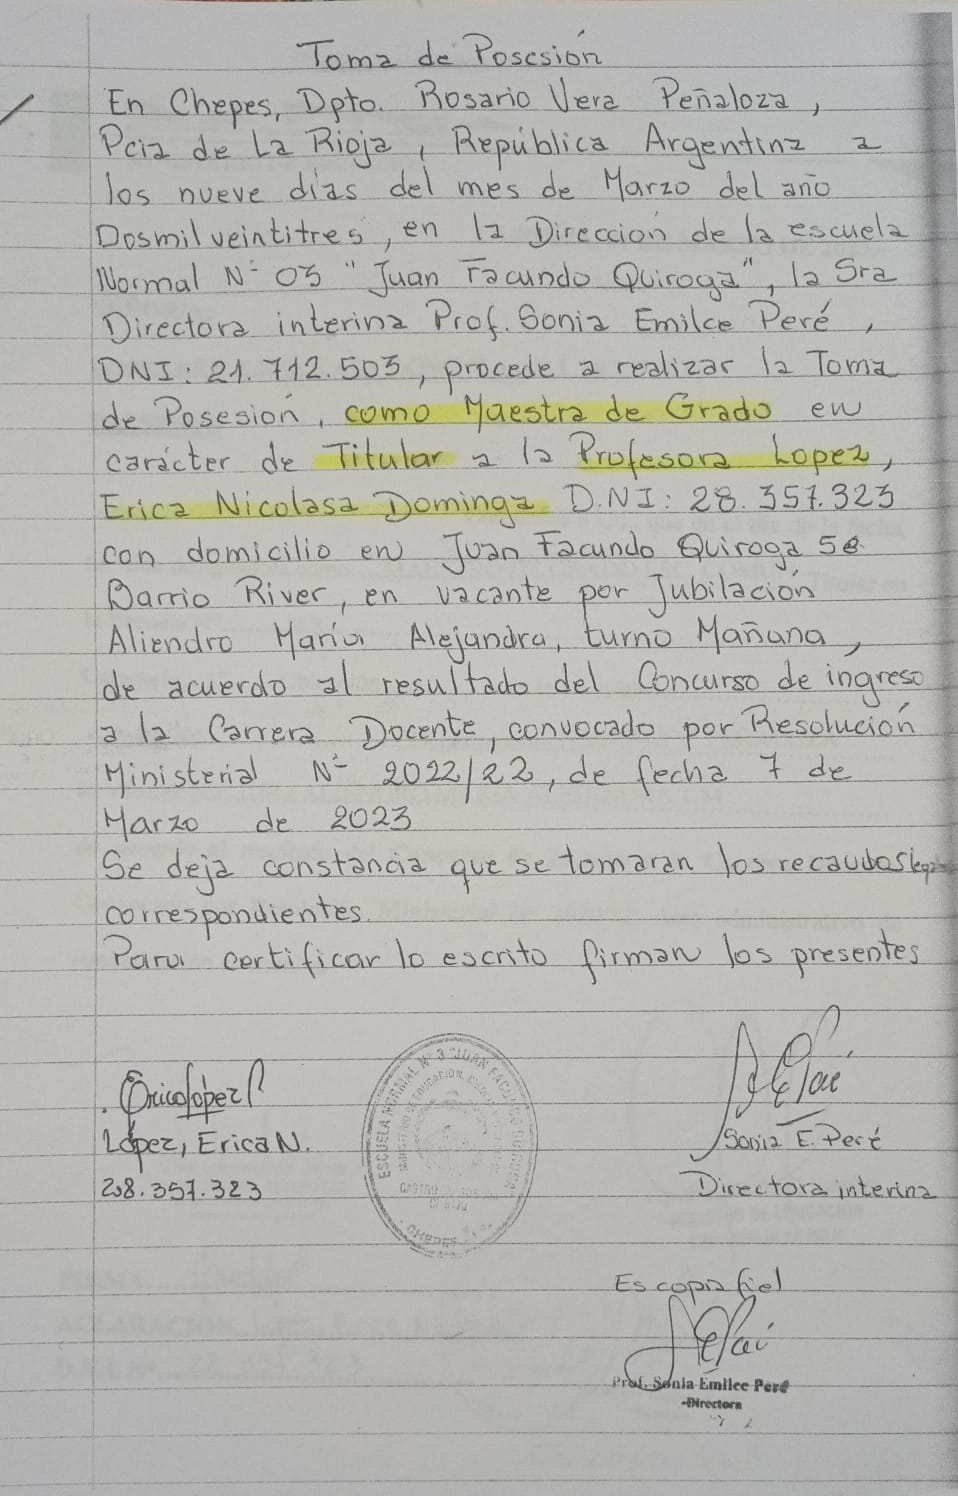 Toma de Posesión
En Chepes, Dpto. Rosario Vera Peñaloza,
Pcia de La Rioja, República Argentina a
los nueve días del mes de Marzo del año
Dosmil veintitres, en la Dirección de la escuela
Normal N° 03 "Juan Facundo Quiroga", la Sra
Directora interina Prof. Sonia Emilce Peré,
DNI: 21.712.503, procede a realizar la Toma
de Posesión, como Maestra de Grado en
carácter de Titular a la Profesora Lopez,
Erica Nicolasa Dominga D.NI: 28.357.323
con domicilio en Juan Facundo Quiroga
Barrio River, en vacante por Jubilación
Aliendro María Alejandra, turno Mañana,
de acuerdo al resultado del Concurso de ingreso
a la Carrera Docente, convocado por Resolución
Ministerial N° 2022/22, de fecha 7 de
Marzo de 2023
Se deja constancia que se tomaran los recaudos
correspondientes.
Para certificar lo escrito firman los presentes
López, Erica N.
28.357.323
ESCUELA NORMAL N° 3 "JUAN FACUNDO QUIROGA"
CHEPES
Sonia E. Peré
Directora interina
Es copia fiel
Prof. Sonia Emilce Peré
-Directora